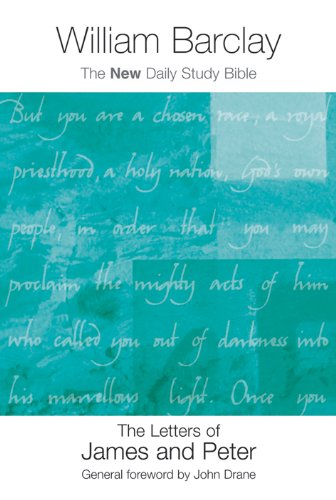 William Barclay
The New Daily Study Bible
But you are a chosen race, a royal
priesthood, a holy nation, God's own
people, in order that you may
proclaim the mighty acts of him
who called you out of darkness into
his marvellous light. Once you
The Letters of
James and Peter
General foreword by John Drane